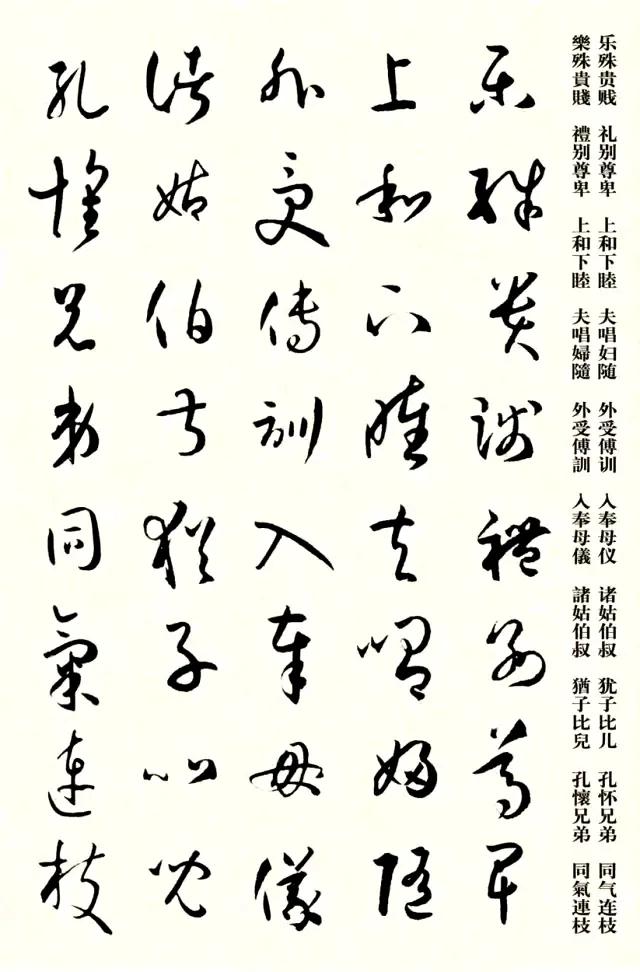 乐殊贵贱 礼别尊卑 上和下睦 夫唱妇随 外受傅训 入奉母仪 诸姑伯叔 犹子比儿 孔怀兄弟 同气连枝
樂殊貴賤 禮別尊卑 上和下睦 夫唱婦隨 外受傅訓 入奉母儀 諸姑伯叔 猶子比兒 孔懷兄弟 同氣連枝
樂殊貴賤禮別尊卑
上和下睦夫唱婦隨
外受傅訓入奉母儀
諸姑伯叔猶子比兒
孔懷兄弟同氣連枝